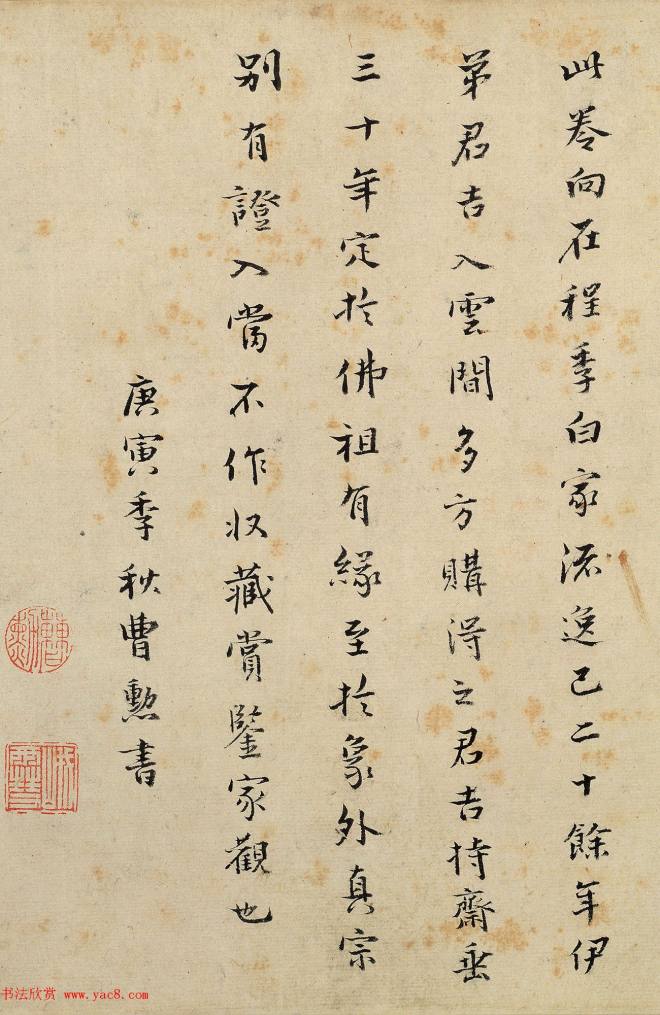 此卷向在程季白家流逸已二十餘年伊
弟君吉入雲間多方購得之君吉持齋垂
三十年定於佛祖有緣至於象外真宗
別有證入當不作收藏賞鑒家觀也
庚寅季秋曹勳書
书法欣赏 www.yac8.com